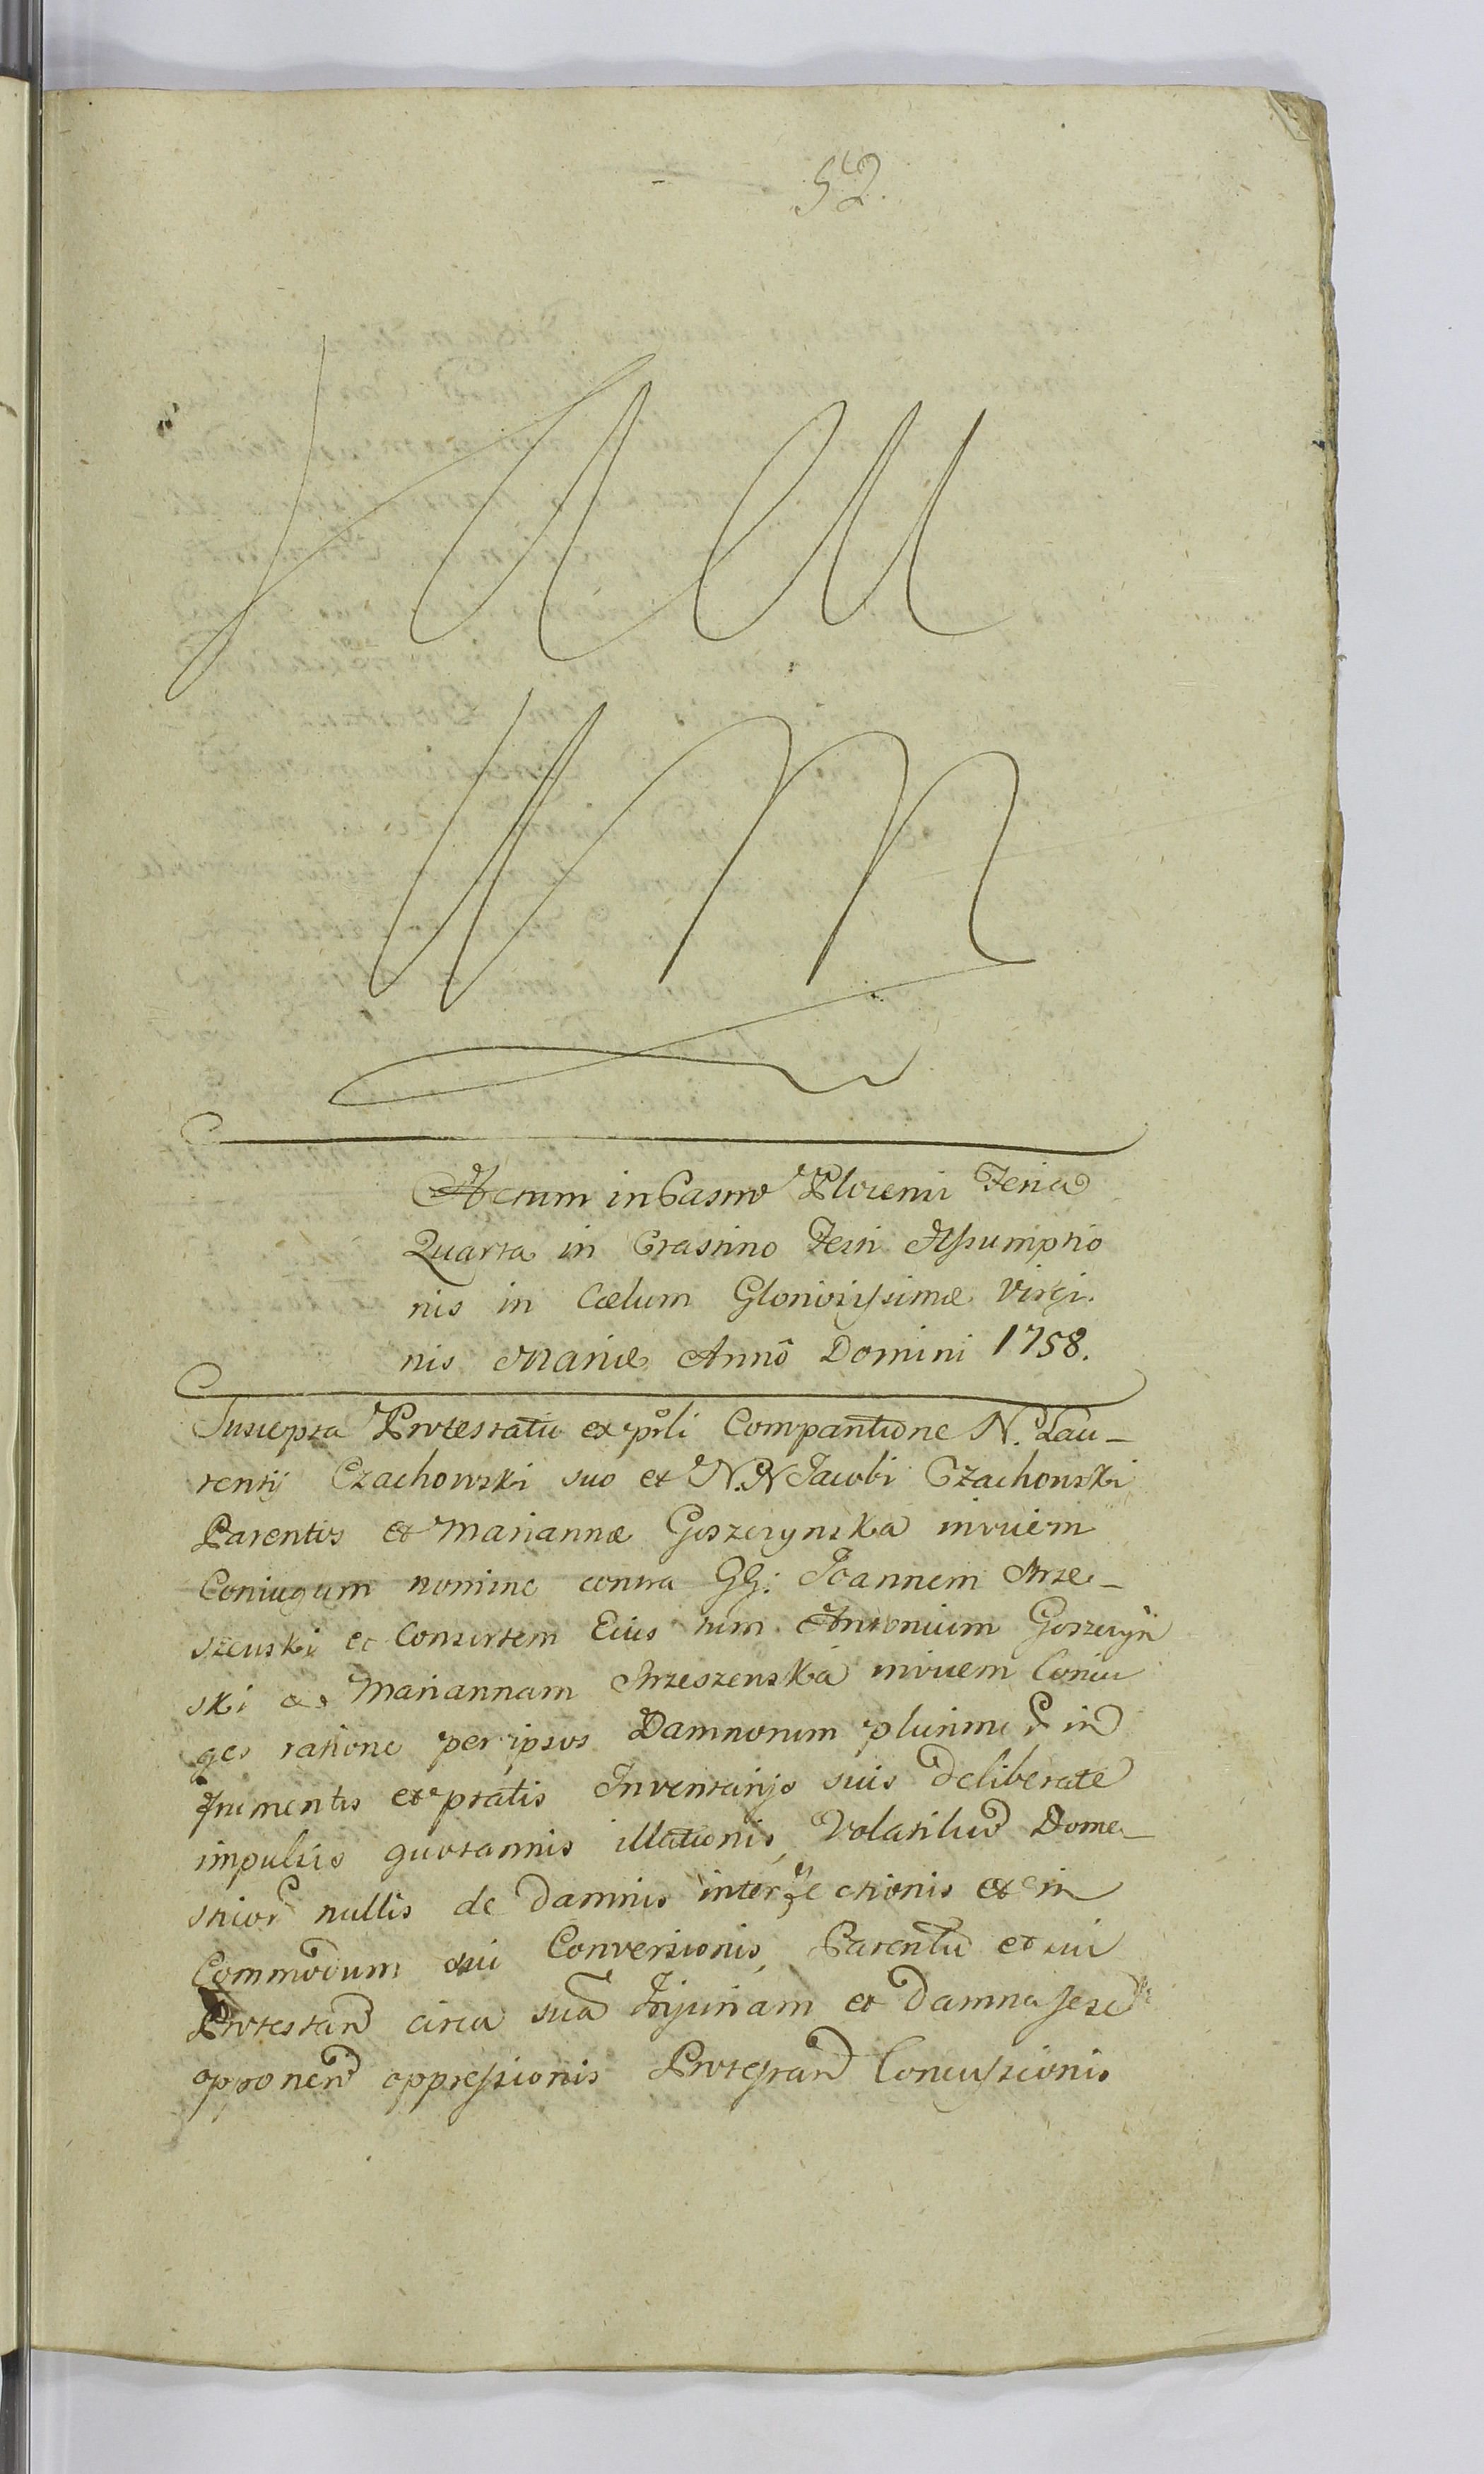 52.
Actum in Castro Plocensi Feria
Quarta in Crastino Festi Assumptio
nis in Cælum Gloriosissimæ Virgi.
nis Mariæ Annô Domini 1758.
Suscepta Protestatio ex psli Compantione N. Lau_
rentij Czachowski suo et N.N Jacobi Czachowski
Parentis et Mariannæ Goszczynska invicem
Coniugum nomine contra GG: Joannem Strze_
szewski et Consortem Eius tum Antonium Goszczyn
ski et Mariannam Strzeszewska invicem Coniu
ges ratione per ipsos Damnorum plurimo in
frumentis et pratis Inventarijs suis deliberate
impulsis quotannis illationis, Volatiliu Dome_
sticor nullis de damnis interfectionis et in
Commodum sui Conversionis, Parentu et sui
Protestan circa sua Injuriam et damna sese
opponen oppressionis Protestan Concussionis